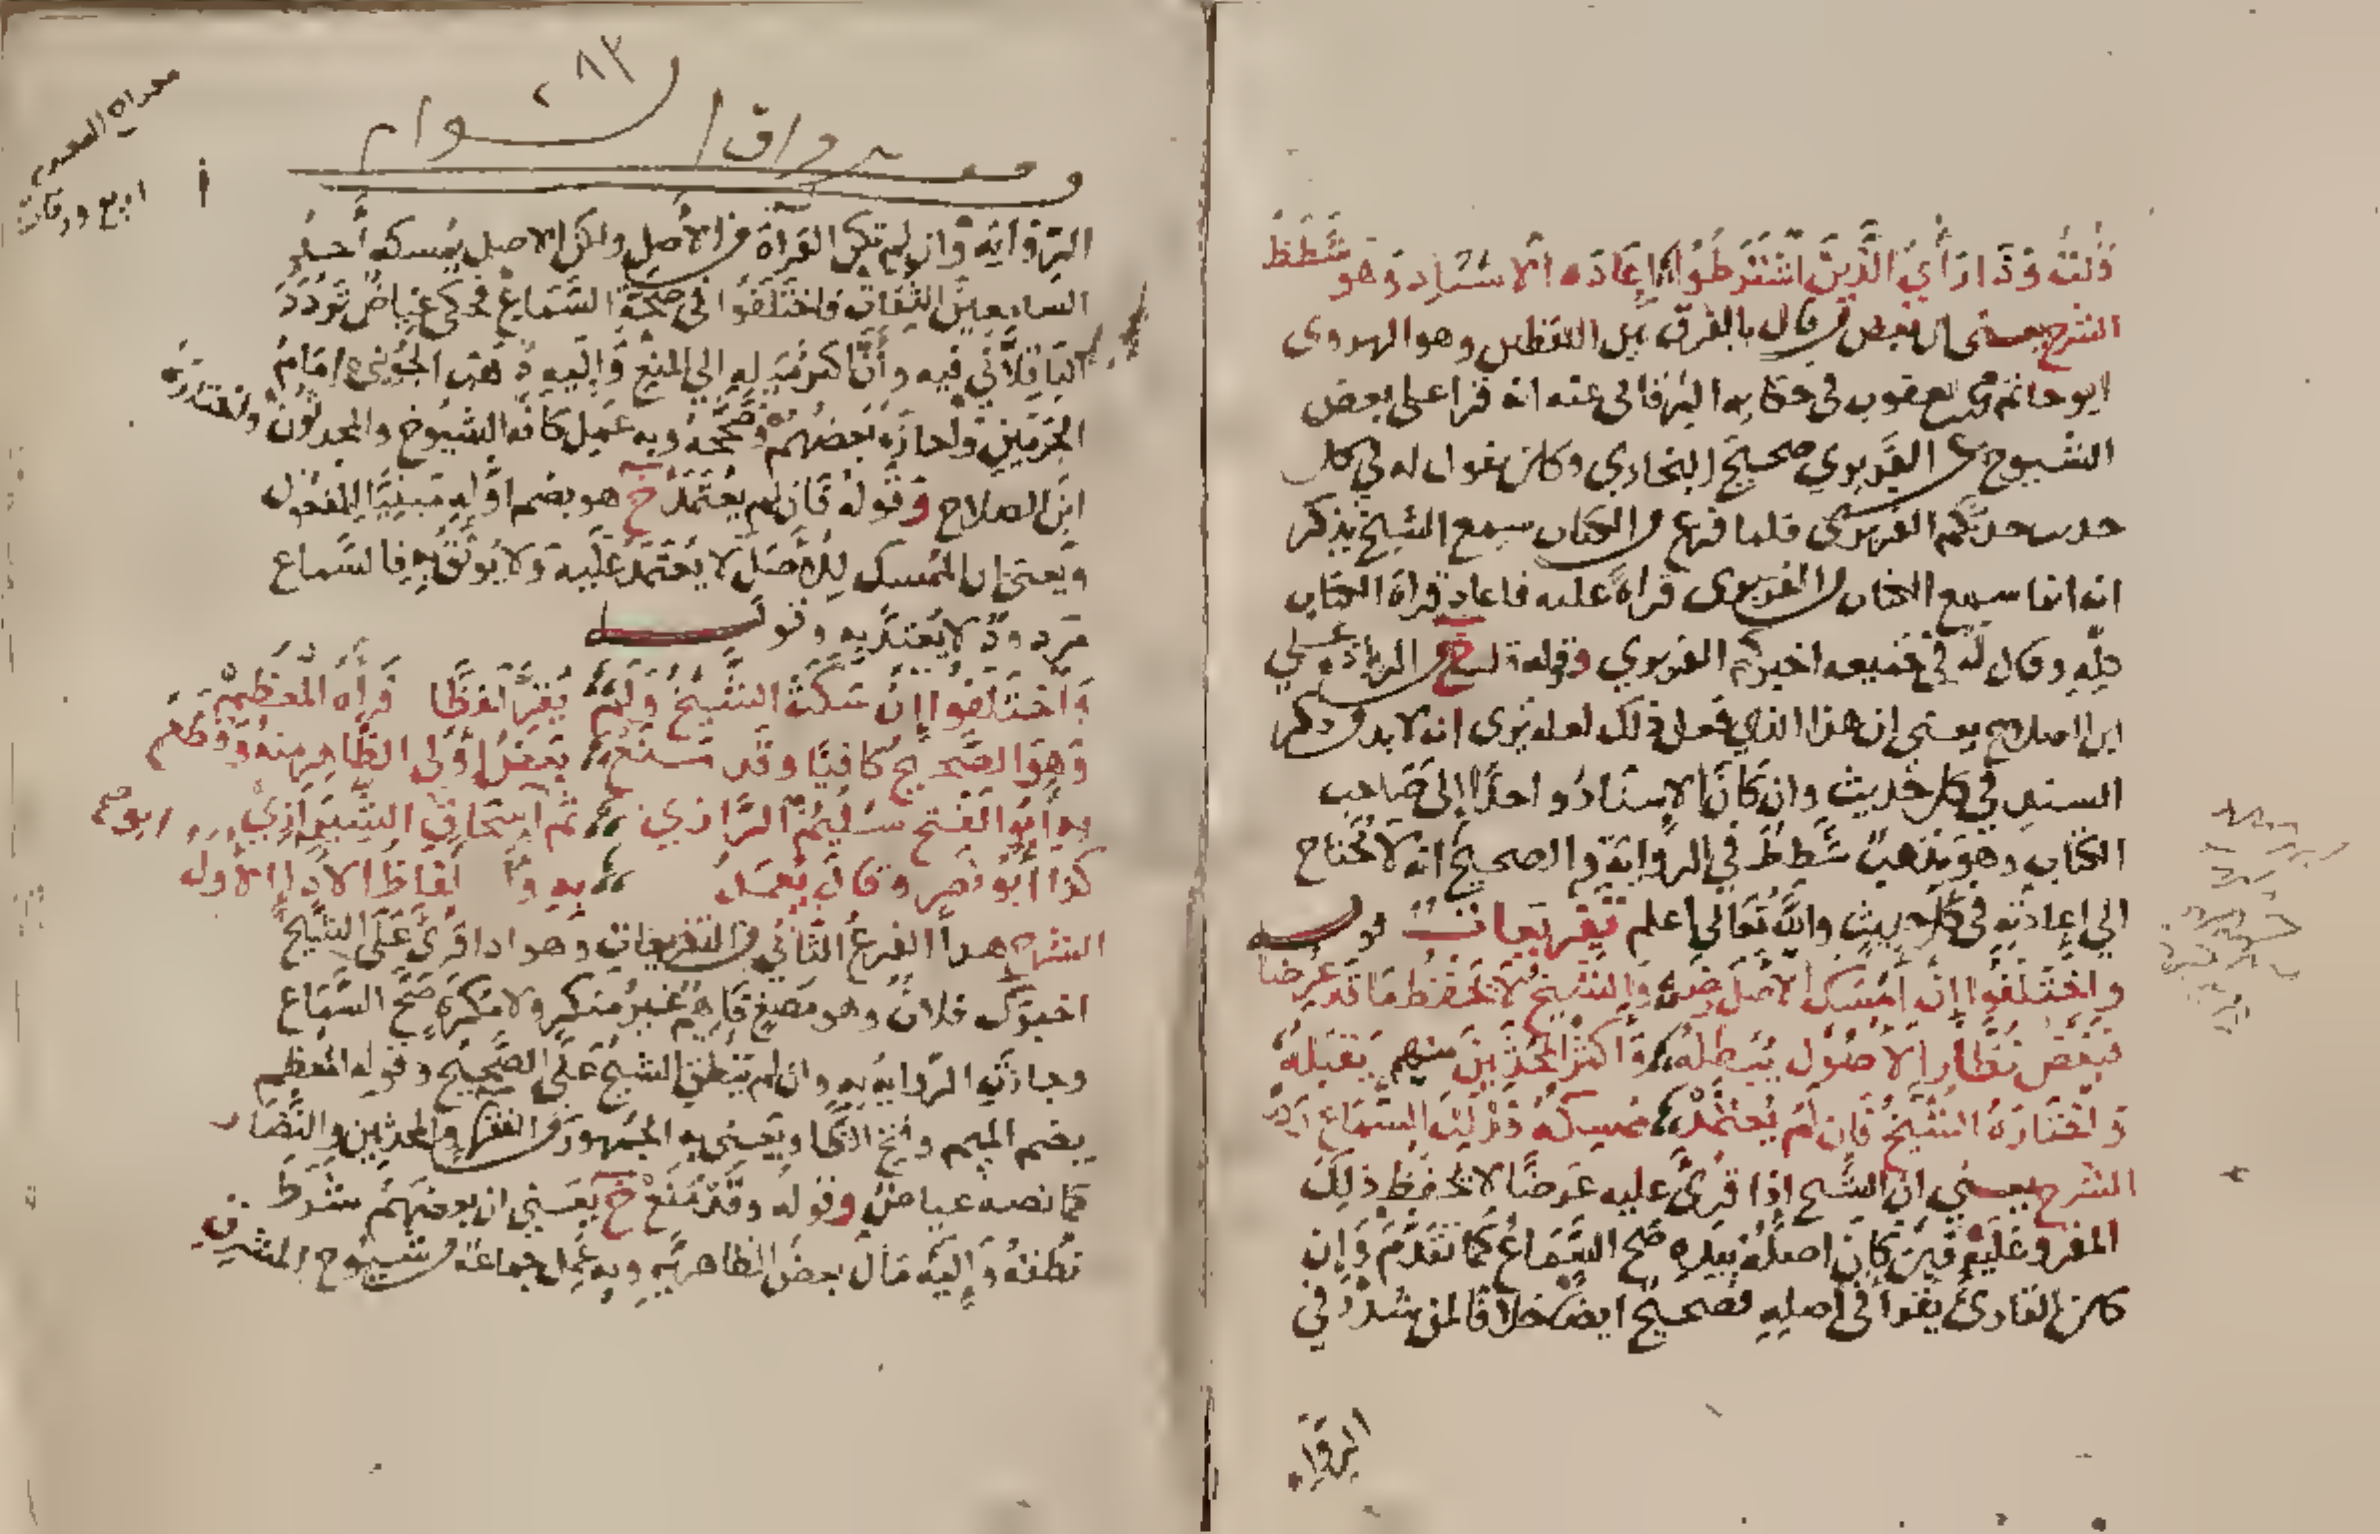 قلت وذا رأي الذين اشترطوا إعادة الإسناد وهو شطط
الشرح يعني ان بعض من قال بالفرق بين اللفظين وهو الهروي
ابو حاتم محمد بن يعقوب في حكاية البرقاني عنه انه قرأ على بعض
الشيوخ عن الفربري صحيح البخاري وكان يقول له في كل
حديث حدثكم الفربري فلما فرغ من الكتاب سمع الشيخ يذكر
انه انما سمع الكتاب من الفربري قراءة عليه فاعاد قراءة الكتاب
كله وقال له في جميعه اخبركم الفربري وقوله قلت خ من الزيادة على
ابن الصلاح يعني ان هذا الذي فعل ذلك لعله يرى انه لا بد من ذكر
السند في كل حديث وان كان الإسناد واحدا إلى صاحب
الكتاب وهو مذهب شطط في الرواية والصحيح انه لا يحتاج
الي إعادته في كل حديث والله تعالى اعلم تفريعات قوله
واختلفوا إن امسك الأصل رضى والشيخ لا يحفظ ما قد عرضا
فبعض نظار الأصول يبطله وأكثر المحدثين منهم يقبله
واختاره الشيخ فان لم يعتمد ممسكه فذلك السماع رد
الشرح يعني ان الشيخ اذا قرئ عليه عرضا لا يحفظ ذلك
المقروء عليه فمن كان اصله بيده صح السماع كما تقدم وإن
كان القارئ يقرأ في أصله فصحيح ايضا خلافا لمن شدد في
الرواية
وقف رواق الشوام
اربع ورقات
الرواية وان لم تكن القراءة من الأصل ولكن الاصل يمسكه أحد
السامعين الثقات فاختلفوا في صحة السماع فحكى عياض تردد
الباقلاني فيه وأن اكثر ميله إلي المنع وإليه ذهب الجويني إمام
الحرمين واجازه بعضهم وصححه وبه عمل كافة الشيوخ والمحدثون واختاره
ابن الصلاح وقوله فان لم يعتمد خ هو بضم اوله مبنيا للمفعول
ويعني ان الممسك للأصل لا يعتمد عليه ولا يوثق به فالسماع
مردود لا يعتد به وقوله
واختلفوا إن سكت الشيخ ولم يقر لفظا فرآه المعظم
وهو الصحيح كافيا وقد منع بعض أولي الظاهر منه وقطع
به أبو الفتح سليم الرازي ثم أبو إسحاق الشيرازي
كذا أبو نصر وقال يعمل به وألفاظ الأداء الأول
الشرح هذا الفرع الثاني من التفريعات وهو اذا قرئ على الشيخ
اخبرك فلان وهو مصغ فاهم غير منكر ولا مكره صح السماع
وجازت الرواية به وان لم ينطق الشيخ على الصحيح وقوله المعظم
بضم الميم وفتح الظا ويعني به الجمهور من الفقهاء والمحدثين والنظار
كما نصه عياض وقوله وقد منع خ يعني ان بعضهم شرط
نطقه وإليه مال بعض الظاهرية وبه عمل جماعة من شيوخ المشرق